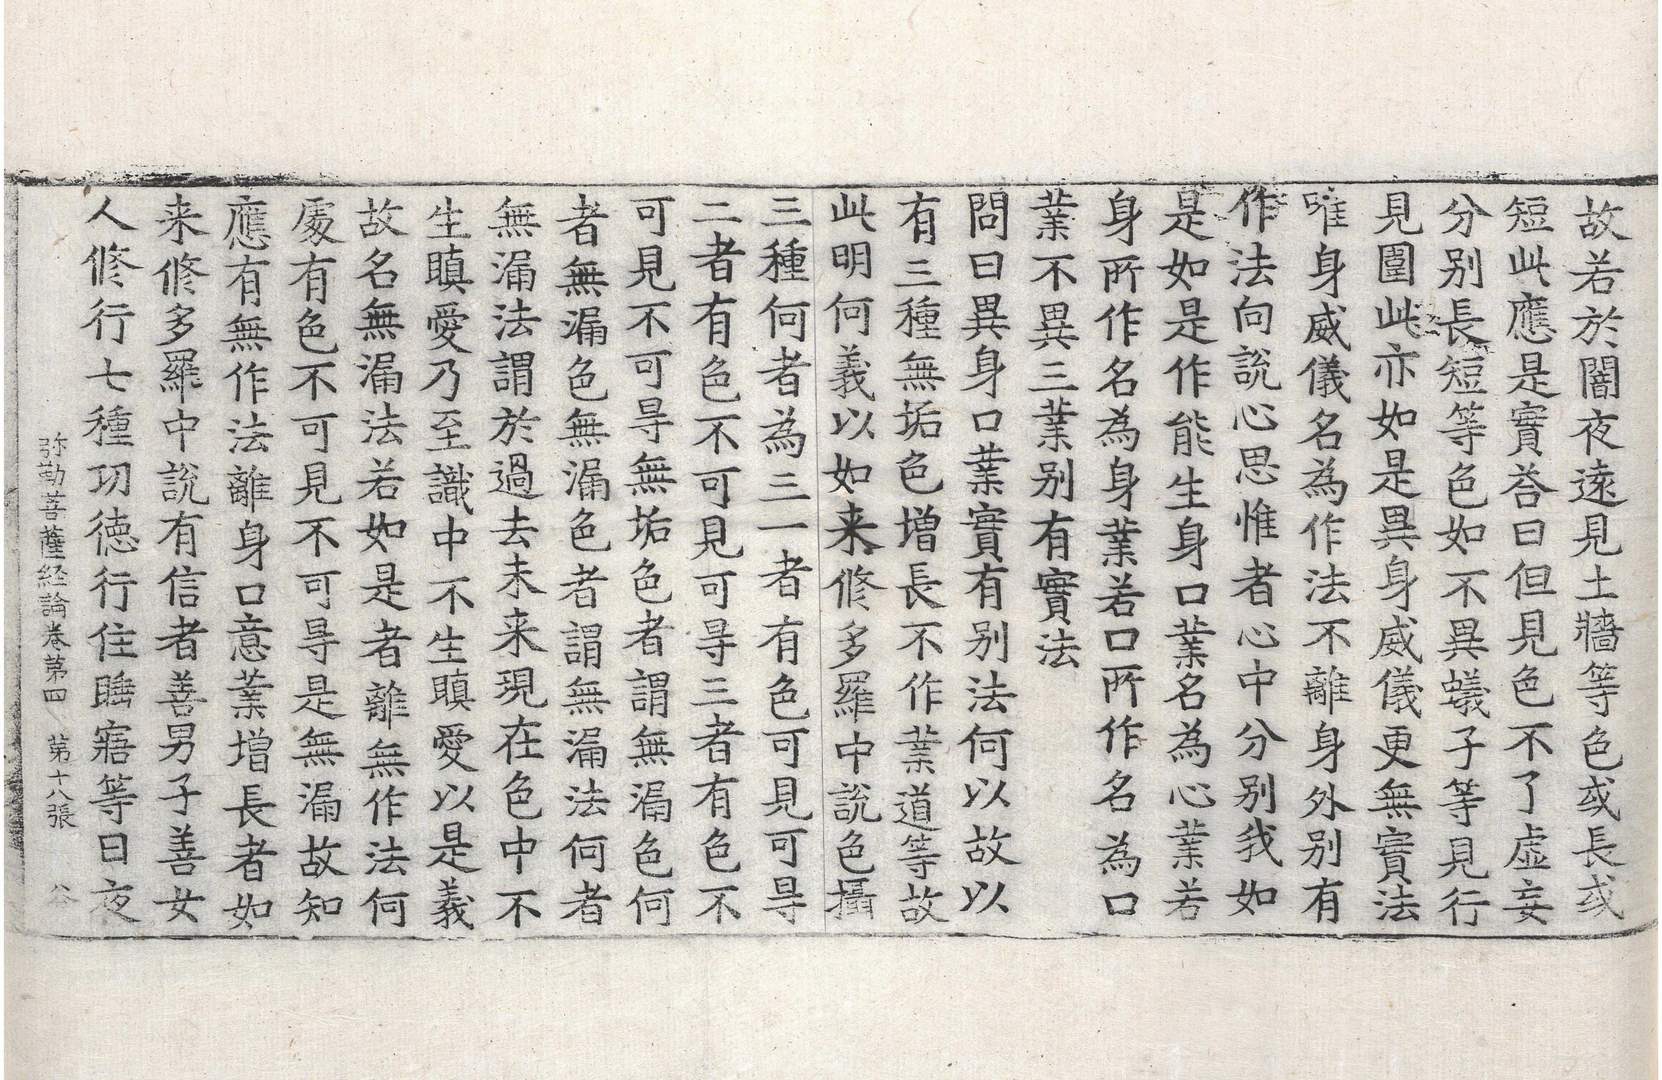 故若於闇夜遠見土牆等色或長或
短此應是實荅曰但見色不了虛妄
分别長短等色如不異蟻子等見行
見圍此亦如是異身威儀更無實法
唯身威儀名為作法不離身外别有
作法向說心思惟者心中分别我如
是如是作能生身口業名為心業若
身所作名為身業若口所作名為口
業不異三業别有實法
問曰異身口業實有别法何以故以
有三種無垢色增長不作業道等故
此明何義以如来修多羅中說色攝
三種何者為三一者有色可見可㝵
二者有色不可見可㝵三者有色不
可見不可㝵無垢色者謂無漏色何
者無漏色無漏色者謂無漏法何者
無漏法謂於過去未来現在色中不
生瞋愛乃至識中不生瞋愛以是義
故名無漏法若如是者離無作法何
處有色不可見不可㝵是無漏故知
應有無作法離身口意業增長者如
来修多羅中說有信者善男子善女
人修行七種功德行住睡寤等日夜
弥勒菩薩経論卷第四 第十八張